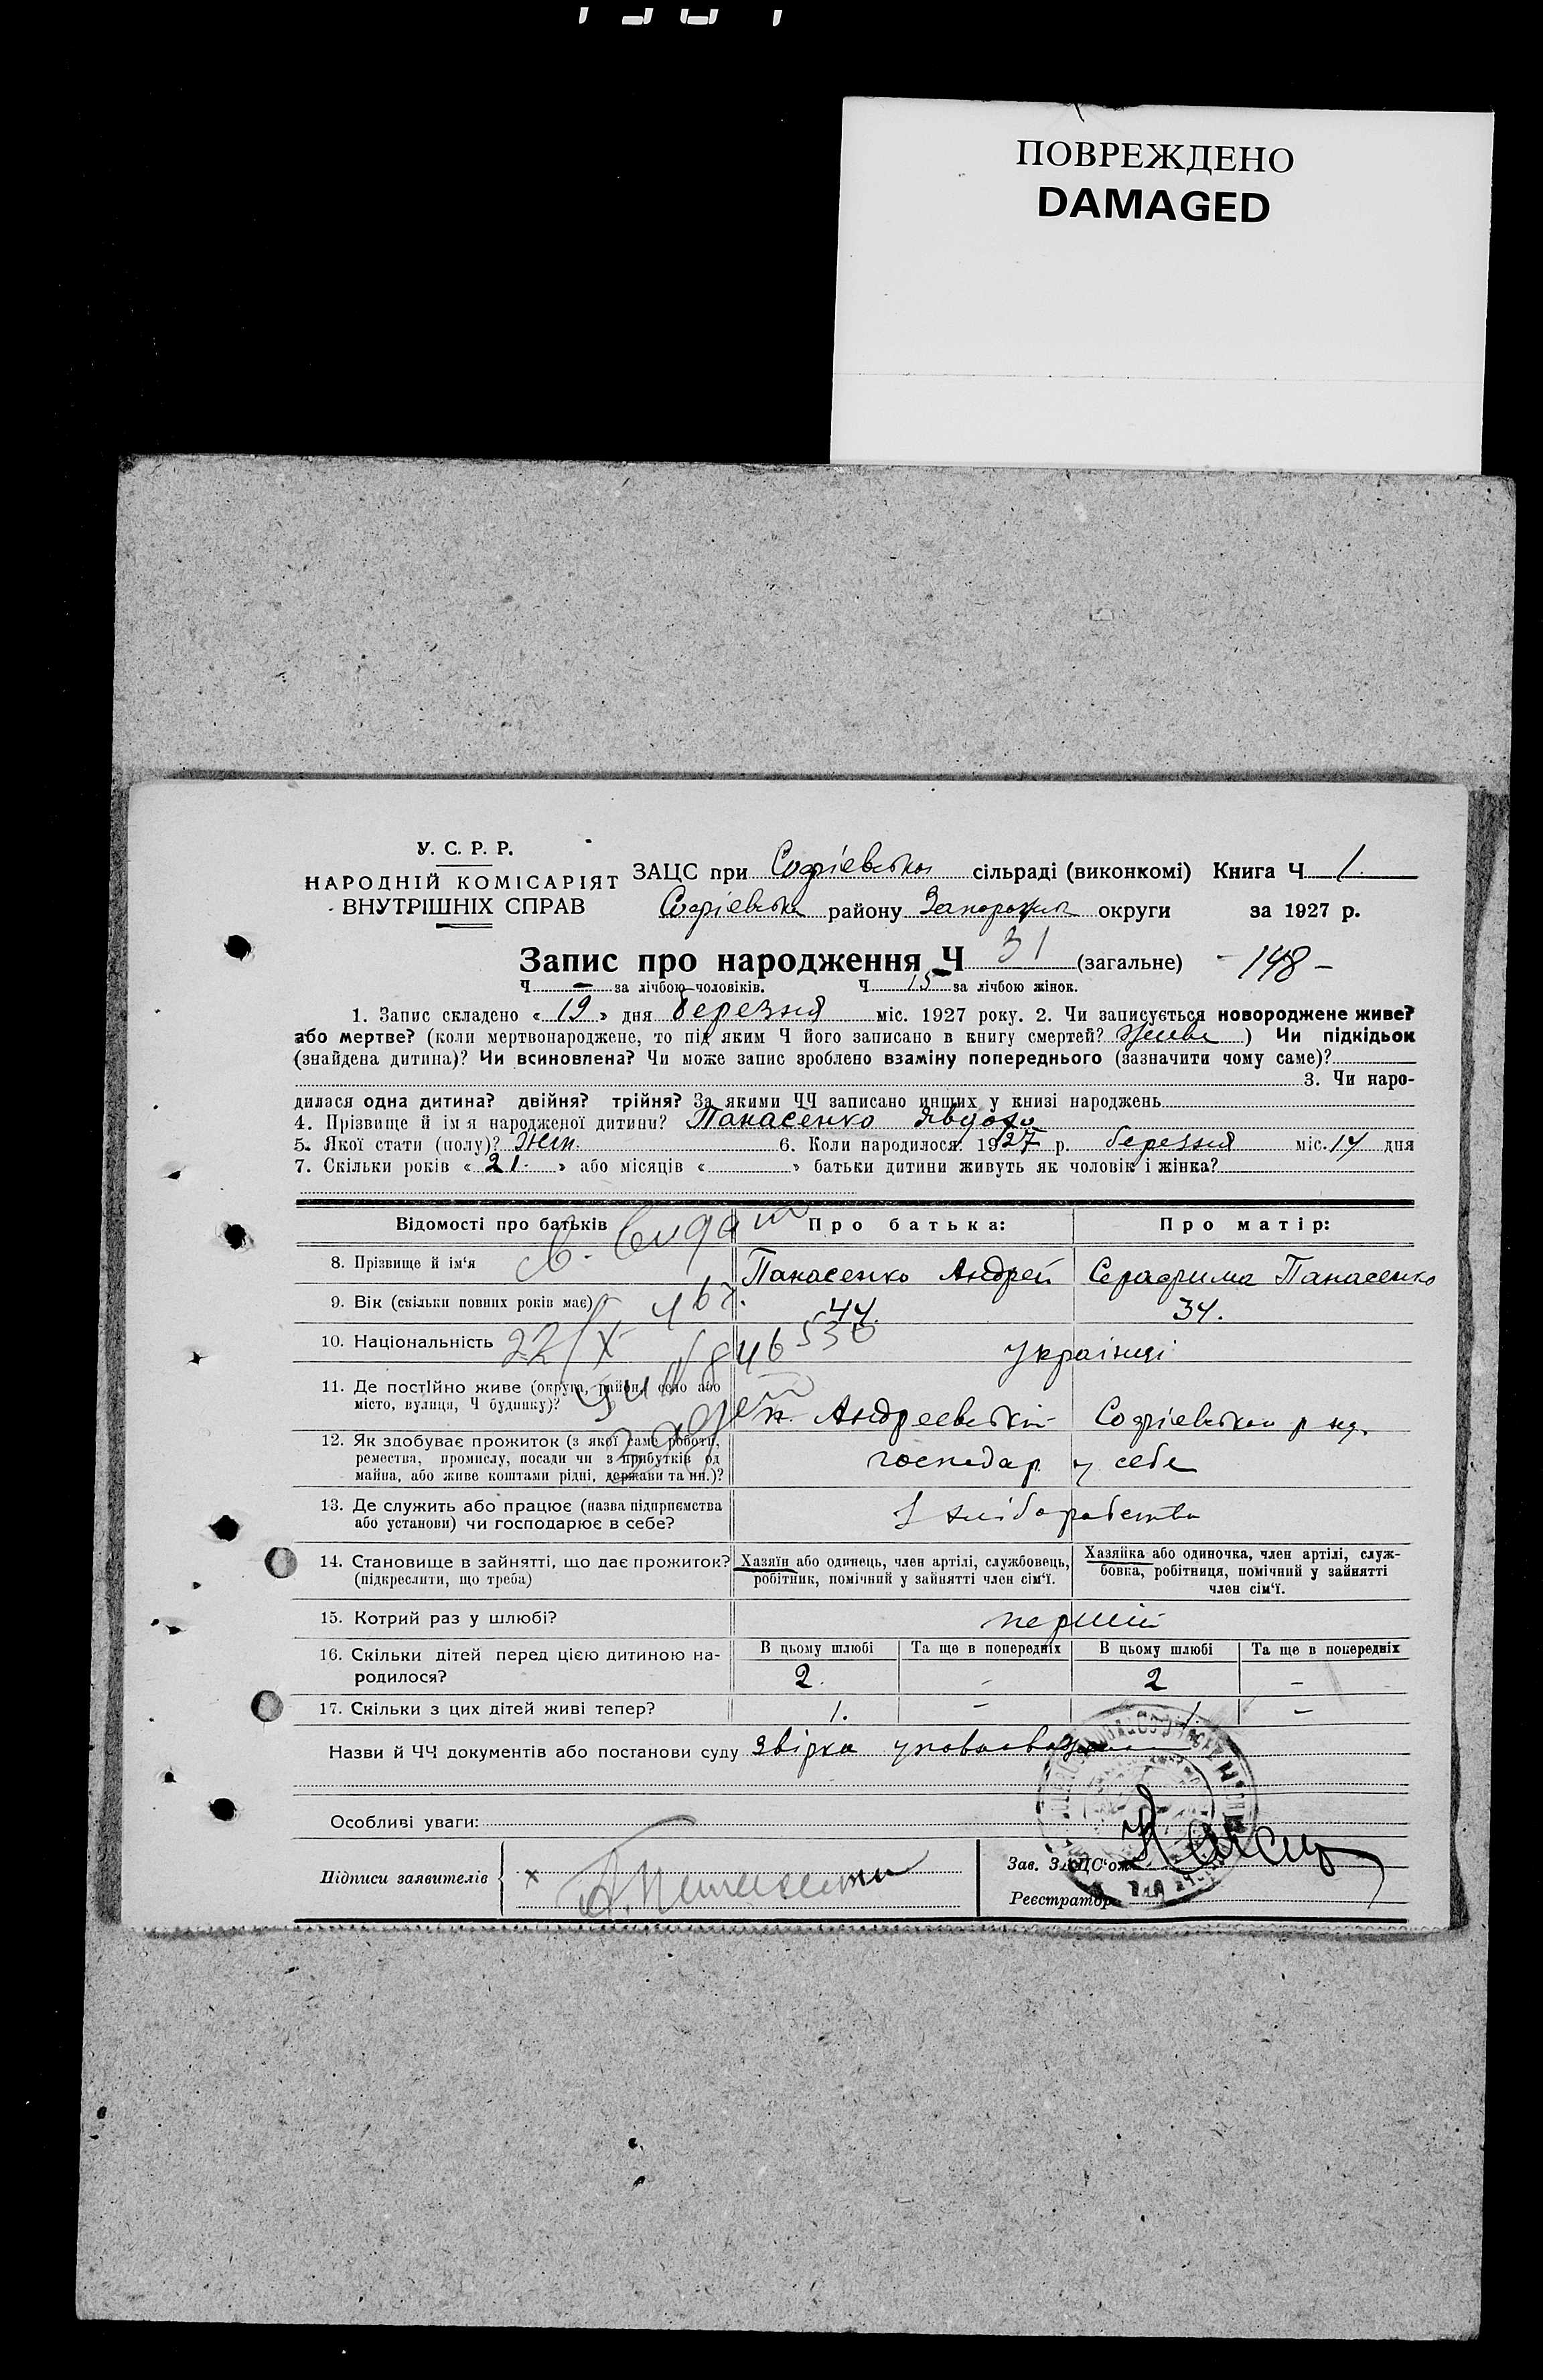 ПОВРЕЖДЕНО
DAMAGED
У. С. Р. Р.
НАРОДНІЙ КОМІСАРІЯТ
ВНУТРІШНІХ СПРАВ
ЗАЦС при Софіевська сільраді (виконкомі) Книга Ч 1.
Софіевська району Запорожск округи за 1927 р.
Запис про народження Ч 31 (загальне) - 148 -
Ч - за лічбою чоловіків. Ч 15 за лічбою жінок.
1. Запис складено « 19 » дня березня міс. 1927 року. 2. Чи записується новороджене живе?
або мертве? (коли мертвонароджене, то під яким Ч його записано в книгу смертей? живе ) Чи підкідьок
(знайдена дитина)? Чи всиновлена? Чи може запис зроблено взаміну попереднього (зазначити чому саме)?
3. Чи наро-
дилася одна дитина? двійня? трійня? За якими ЧЧ записано инших у книзі народжень
4. Прізвище й ім я народженої дитини? Панасенко Явдоха
5. Якої стати (полу)? жін. 6. Коли народилося 1927 р. березня міс. 14 дня
7. Скільки років « 21. » або місяців « » батьки дитини живуть як чоловік і жінка?
Відомості про батьків Про батька: Про матір:
8. Прізвище й ім‘я Панасенко Андрей Серафима Панасенко
9. Вік (скільки повних років має) 44. 34.
10. Національність українці
11. Де постійно живе (округа, район, село або
місто, вулиця, Ч будинку)? Андреевській Софіевськой р
12. Як здобуває прожиток (з якої саме роботи,
ремества, промислу, посади чи з прибутків од
майна, або живе коштами рідні, держави та ин.)? господар у себе
13. Де служить або працює (назва підприємства
або установи) чи господарює в себе? З хліборобства
14. Становище в зайнятті, що дає прожиток?
(підкреслити, що треба)
Хазяїн або одинець, член артілі, службовець,
робітник, помічний у зайнятті член сім‘ї.
Хазяйка або одиночка, член артілі, служ-
бовка, робітниця, помічний у зайнятті
член сім‘ї.
15. Котрий раз у шлюбі? перший
В цьому шлюбі Та ще в попередніх В цьому шлюбі Та ще в попередніх
16. Скільки дітей перед цією дитиною на-
родилося? 2. - 2 -
17. Скільки з цих дітей живі тепер? 1. - 1. -
Назви й ЧЧ документів або постанови суду звірка
Особливі уваги:
Підписи заявителів х А. Панасенко
Зав. ЗАЦС‘ом
Реєстратор